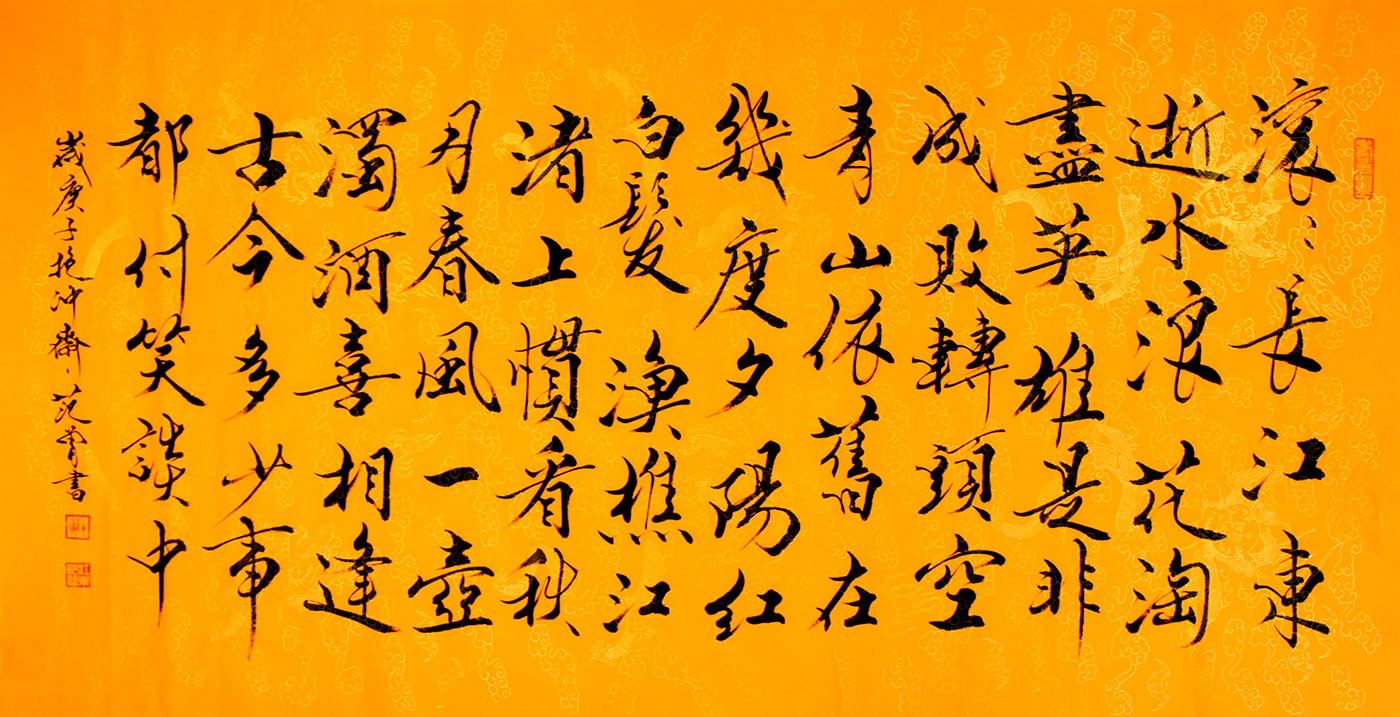 滾〻長江東
逝水浪花淘
盡英雄是非
成敗轉頭空
青山依舊在
幾度夕陽紅
白髮漁樵江
渚上慣看秋
月春風一壺
濁酒喜相逢
古今多少事
都付笑談中
歲庚子抱冲齋范曾書